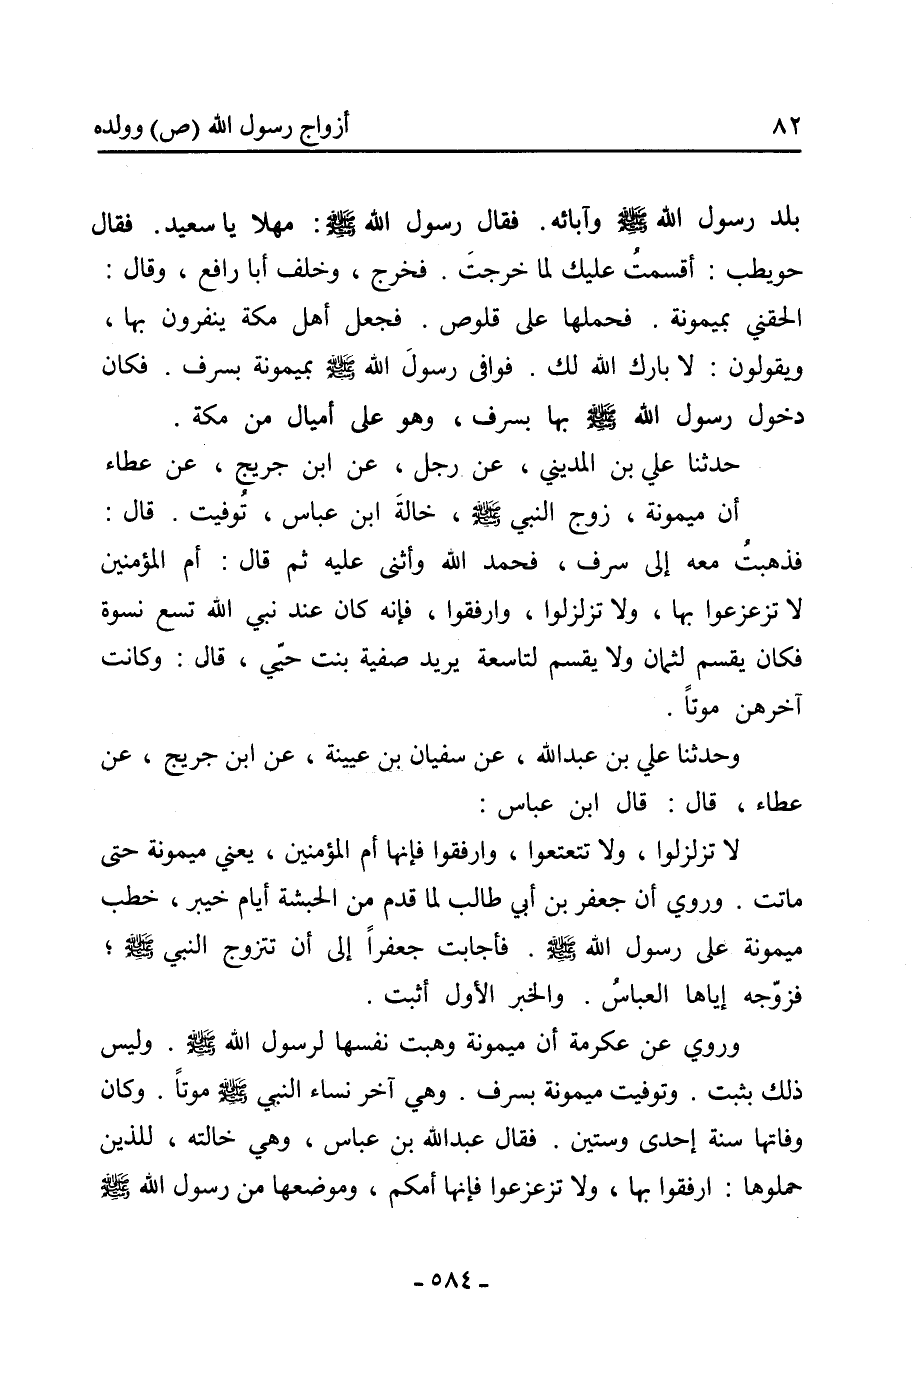 ٨٢ أزواج رسول الله (ص) وولده
بلد رسول الله ﷺ وآبائه. فقال رسول الله ﷺ: مهلا يا سعيد. فقال
حويطب : أقسمتُ عليك لما خرجتَ . فخرج ، وخلف أبا رافع ، وقال :
الحقني بميمونة . فحملها على قلوص . فجعل أهل مكة ينفرون بها ،
ويقولون : لا بارك الله لك . فوافى رسولَ الله ﷺ بميمونة بسرف . فكان
دخول رسول الله ﷺ بها بسرف ، وهو على أميال من مكة .
حدثنا علي بن المديني ، عن رجل ، عن ابن جريج ، عن عطاء
أن ميمونة ، زوج النبي ﷺ ، خالةَ ابن عباس ، تُوفيت . قال :
فذهبتُ معه إلى سرف ، فحمد الله وأثنى عليه ثم قال : أم المؤمنين
لا تزعزعوا بها ، ولا تزلزلوا ، وارفقوا ، فإنه كان عند نبي الله تسع نسوة
فكان يقسم لثمان ولا يقسم لتاسعة يريد صفية بنت حيّي ، قال : وكانت
آخرهن موتاً .
وحدثنا علي بن عبدالله ، عن سفيان بن عيينة ، عن ابن جريج ، عن
عطاء ، قال : قال ابن عباس :
لا تزلزلوا ، ولا تتعتعوا ، وارفقوا فإنها أم المؤمنين ، يعني ميمونة حتى
ماتت . وروي أن جعفر بن أبي طالب لما قدم من الحبشة أيام خيبر ، خطب
ميمونة على رسول الله ﷺ . فأجابت جعفراً إلى أن تتزوج النبي ﷺ ؛
فزوّجه إياها العباسُ . والخبر الأول أثبت .
وروي عن عكرمة أن ميمونة وهبت نفسها لرسول الله ﷺ . وليس
ذلك بثبت . وتوفيت ميمونة بسرف . وهي آخر نساء النبي ﷺ موتاً . وكان
وفاتها سنة إحدى وستين . فقال عبدالله بن عباس ، وهي خالته ، للذين
حملوها : ارفقوا بها ، ولا تزعزعوا فإنها أمكم ، وموضعها من رسول الله ﷺ
- ٥٨٤ -